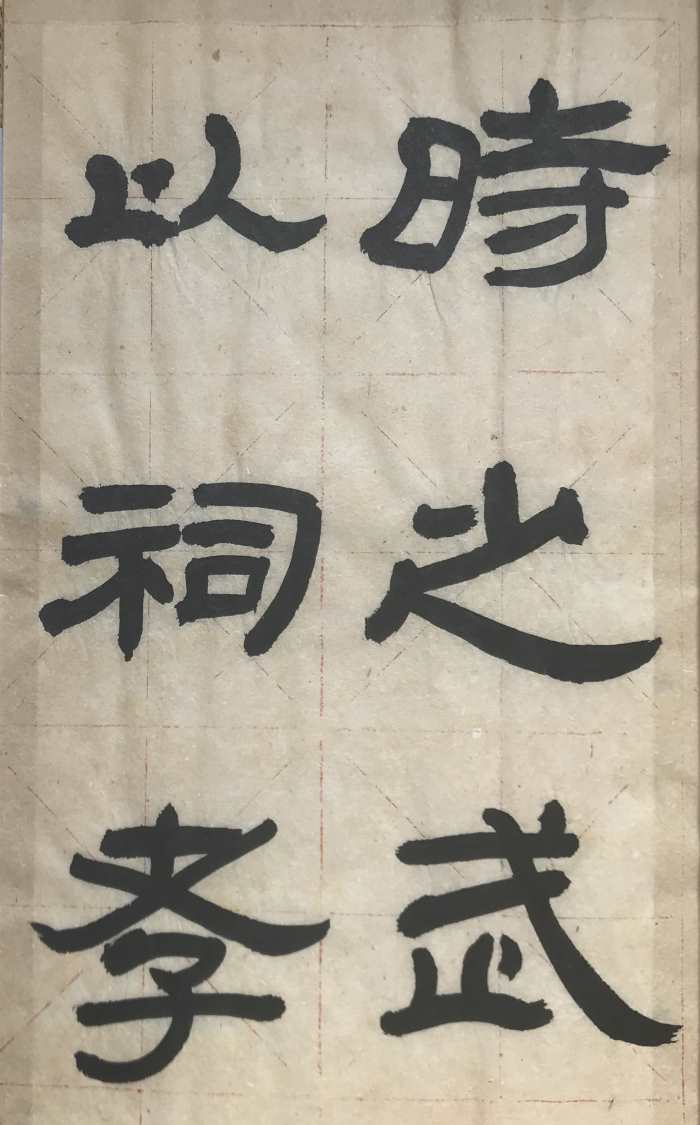 時之武
以祠孝